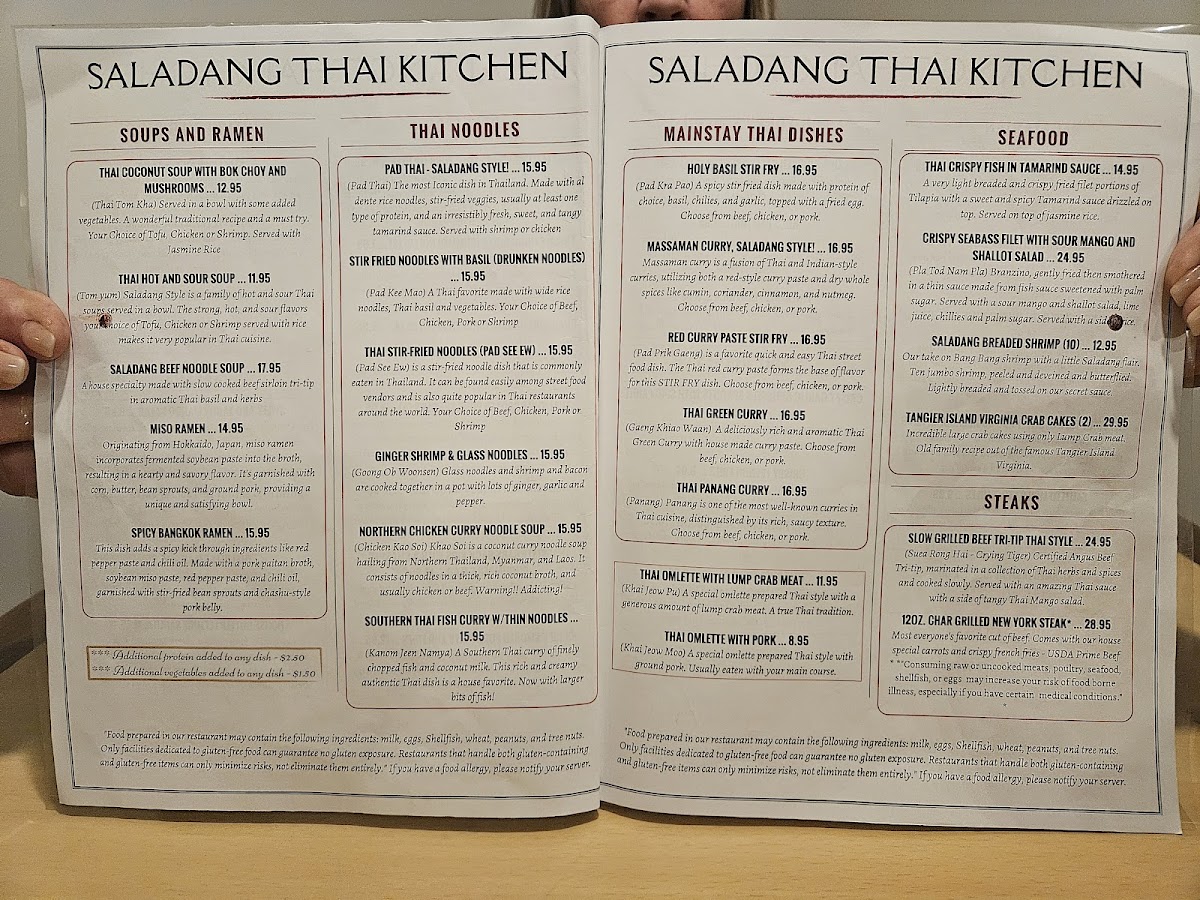 SALADANG THAI KITCHEN
SOUPS AND RAMEN
THAI COCONUT SOUP WITH BOK CHOY AND
MUSHROOMS ... 12.95
(Thai Tom Kha) Served in a bowl with some added
vegetables. A wonderful traditional recipe and a must try.
Your Choice of Tofu, Chicken or Shrimp. Served with
Jasmine Rice
THAI HOT AND SOUR SOUP ... 11.95
(Tom yum) Saladang Style is a family of hot and sour Thai
soups served in a bowl. The strong, hot, and sour flavors
your choice of Tofu, Chicken or Shrimp served with rice
makes it very popular in Thai cuisine.
SALADANG BEEF NOODLE SOUP ... 17.95
A house specialty made with slow cooked beef sirloin tri-tip
in aromatic Thai basil and herbs
MISO RAMEN ... 14.95
Originating from Hokkaido, Japan, miso ramen
incorporates fermented soybean paste into the broth,
resulting in a hearty and savory flavor. It's garnished with
corn, butter, bean sprouts, and ground pork, providing a
unique and satisfying bowl.
SPICY BANGKOK RAMEN ... 15.95
This dish adds a spicy kick through ingredients like red
pepper paste and chili oil. Made with a pork paitan broth,
soybean miso paste, red pepper paste, and chili oil,
garnished with stir-fried bean sprouts and chashu-style
pork belly.
*** Additional protein added to any dish - $2.50
*** Additional vegetables added to any dish - $1.50
THAI NOODLES
PAD THAI - SALADANG STYLE! ... 15.95
(Pad Thai) The most Iconic dish in Thailand. Made with al
dente rice noodles, stir-fried veggies, usually at least one
type of protein, and an irresistibly fresh, sweet, and tangy
tamarind sauce. Served with shrimp or chicken
STIR FRIED NOODLES WITH BASIL (DRUNKEN NOODLES)
... 15.95
(Pad Kee Mao) A Thai favorite made with wide rice
noodles, Thai basil and vegetables. Your Choice of Beef,
Chicken, Pork or Shrimp
THAI STIR-FRIED NOODLES (PAD SEE EW) ... 15.95
(Pad See Ew) is a stir-fried noodle dish that is commonly
eaten in Thailand. It can be found easily among street food
vendors and is also quite popular in Thai restaurants
around the world. Your Choice of Beef, Chicken, Pork or
Shrimp
GINGER SHRIMP & GLASS NOODLES ... 15.95
(Goong Ob Woonsen) Glass noodles and shrimp and bacon
are cooked together in a pot with lots of ginger, garlic and
pepper.
NORTHERN CHICKEN CURRY NOODLE SOUP ... 15.95
(Chicken Kao Soi) Khao Soi is a coconut curry noodle soup
hailing from Northern Thailand, Myanmar, and Laos. It
consists of noodles in a thick, rich coconut broth, and
usually chicken or beef. Warning!! Addicting!
SOUTHERN THAI FISH CURRY W/THIN NOODLES ...
15.95
(Kanom Jeen Namya) A Southern Thai curry of finely
chopped fish and coconut milk. This rich and creamy
authentic Thai dish is a house favorite. Now with larger
bits of fish!
"Food prepared in our restaurant may contain the following ingredients: milk, eggs, Shellfish, wheat, peanuts, and tree nuts.
Only facilities dedicated to gluten-free food can guarantee no gluten exposure. Restaurants that handle both gluten-containing
and gluten-free items can only minimize risks, not eliminate them entirely." If you have a food allergy, please notify your server.
SALADANG THAI KITCHEN
MAINSTAY THAI DISHES
HOLY BASIL STIR FRY ... 16.95
(Pad Kra Pao) A spicy stir fried dish made with protein of
choice, basil, chilies, and garlic, topped with a fried egg.
Choose from beef, chicken, or pork.
MASSAMAN CURRY, SALADANG STYLE! ... 16.95
Massaman curry is a fusion of Thai and Indian-style
curries, utilizing both a red-style curry paste and dry whole
spices like cumin, coriander, cinnamon, and nutmeg.
Choose from beef, chicken, or pork.
RED CURRY PASTE STIR FRY ... 16.95
(Pad Prik Gaeng) is a favorite quick and easy Thai street
food dish. The Thai red curry paste forms the base of flavor
for this STIR FRY dish. Choose from beef, chicken, or pork.
THAI GREEN CURRY ... 16.95
(Gaeng Khiao Waan) A deliciously rich and aromatic Thai
Green Curry with house made curry paste. Choose from
beef, chicken, or pork.
THAI PANANG CURRY ... 16.95
(Panang) Panang is one of the most well-known curries in
Thai cuisine, distinguished by its rich, saucy texture.
Choose from beef, chicken, or pork.
THAI OMLETTE WITH LUMP CRAB MEAT ... 11.95
(Khai Jeow Pu) A special omlette prepared Thai style with a
generous amount of lump crab meat. A true Thai tradition.
THAI OMLETTE WITH PORK ... 8.95
(Khai Jeow Moo) A special omlette prepared Thai style with
ground pork. Usually eaten with your main course.
SEAFOOD
THAI CRISPY FISH IN TAMARIND SAUCE ... 14.95
A very light breaded and crispy fried filet portions of
Tilapia with a sweet and spicy Tamarind sauce drizzled on
top. Served on top of jasmine rice.
CRISPY SEABASS FILET WITH SOUR MANGO AND
SHALLOT SALAD ... 24.95
(Pla Tod Nam Pla) Branzino, gently fried then smothered
in a thin sauce made from fish sauce sweetened with palm
sugar. Served with a sour mango and shallot salad, lime
juice, chillies and palm sugar. Served with a side rice.
SALADANG BREADED SHRIMP (10) ... 12.95
Our take on Bang Bang shrimp with a little Saladang flair.
Ten jumbo shrimp, peeled and deveined and butterflied.
Lightly breaded and tossed on our secret sauce.
TANGIER ISLAND VIRGINIA CRAB CAKES (2) ... 29.95
Incredible large crab cakes using only Lump Crab meat.
Old family recipe out of the famous Tangier Island
Virginia.
STEAKS
SLOW GRILLED BEEF TRI-TIP THAI STYLE ... 24.95
(Suea Rong Hai - Crying Tiger) Certified Angus Beef
Tri-tip, marinated in a collection of Thai herbs and spices
and cooked slowly. Served with an amazing Thai sauce
with a side of tangy Thai Mango salad.
12OZ. CHAR GRILLED NEW YORK STEAK* ... 28.95
Most everyone's favorite cut of beef. Comes with our house
special carrots and crispy french fries - USDA Prime Beef
* "Consuming raw or uncooked meats, poultry, seafood,
shellfish, or eggs may increase your risk of food borne
illness, especially if you have certain medical conditions."
*
"Food prepared in our restaurant may contain the following ingredients: milk, eggs, Shellfish, wheat, peanuts, and tree nuts.
Only facilities dedicated to gluten-free food can guarantee no gluten exposure. Restaurants that handle both gluten-containing
and gluten-free items can only minimize risks, not eliminate them entirely." If you have a food allergy, please notify your server.